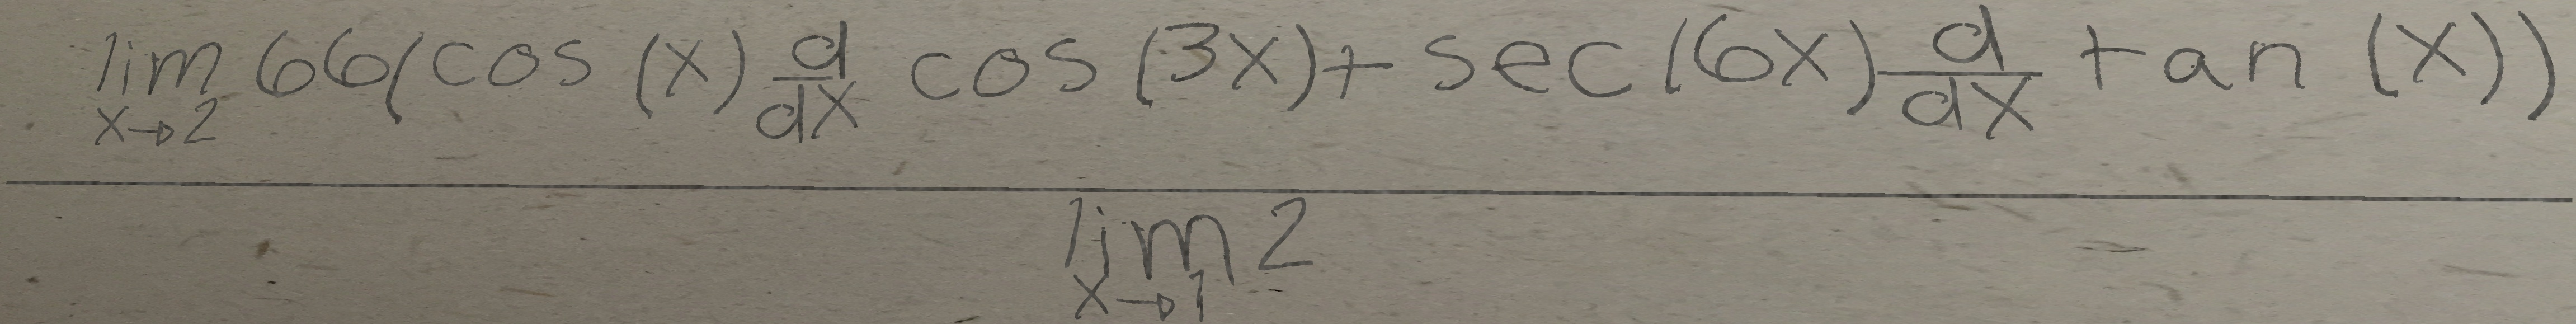 lim 66(cos (x) d/dx cos (3x) + sec (6x) d/dx tan (x))
x→2
lim 2
x→1